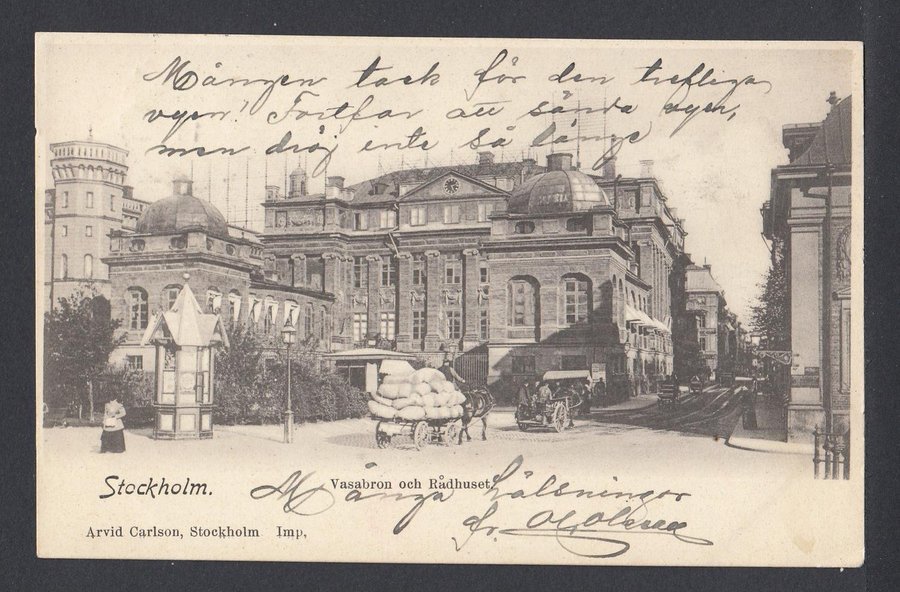 Mången tack för den trefliga
vyen! Fortfar att sända vyer,
men dröj inte så länge
Stockholm.
Vasabron och Rådhuset.
Många hälsningar
fr. Olsson
Arvid Carlson, Stockholm Imp.